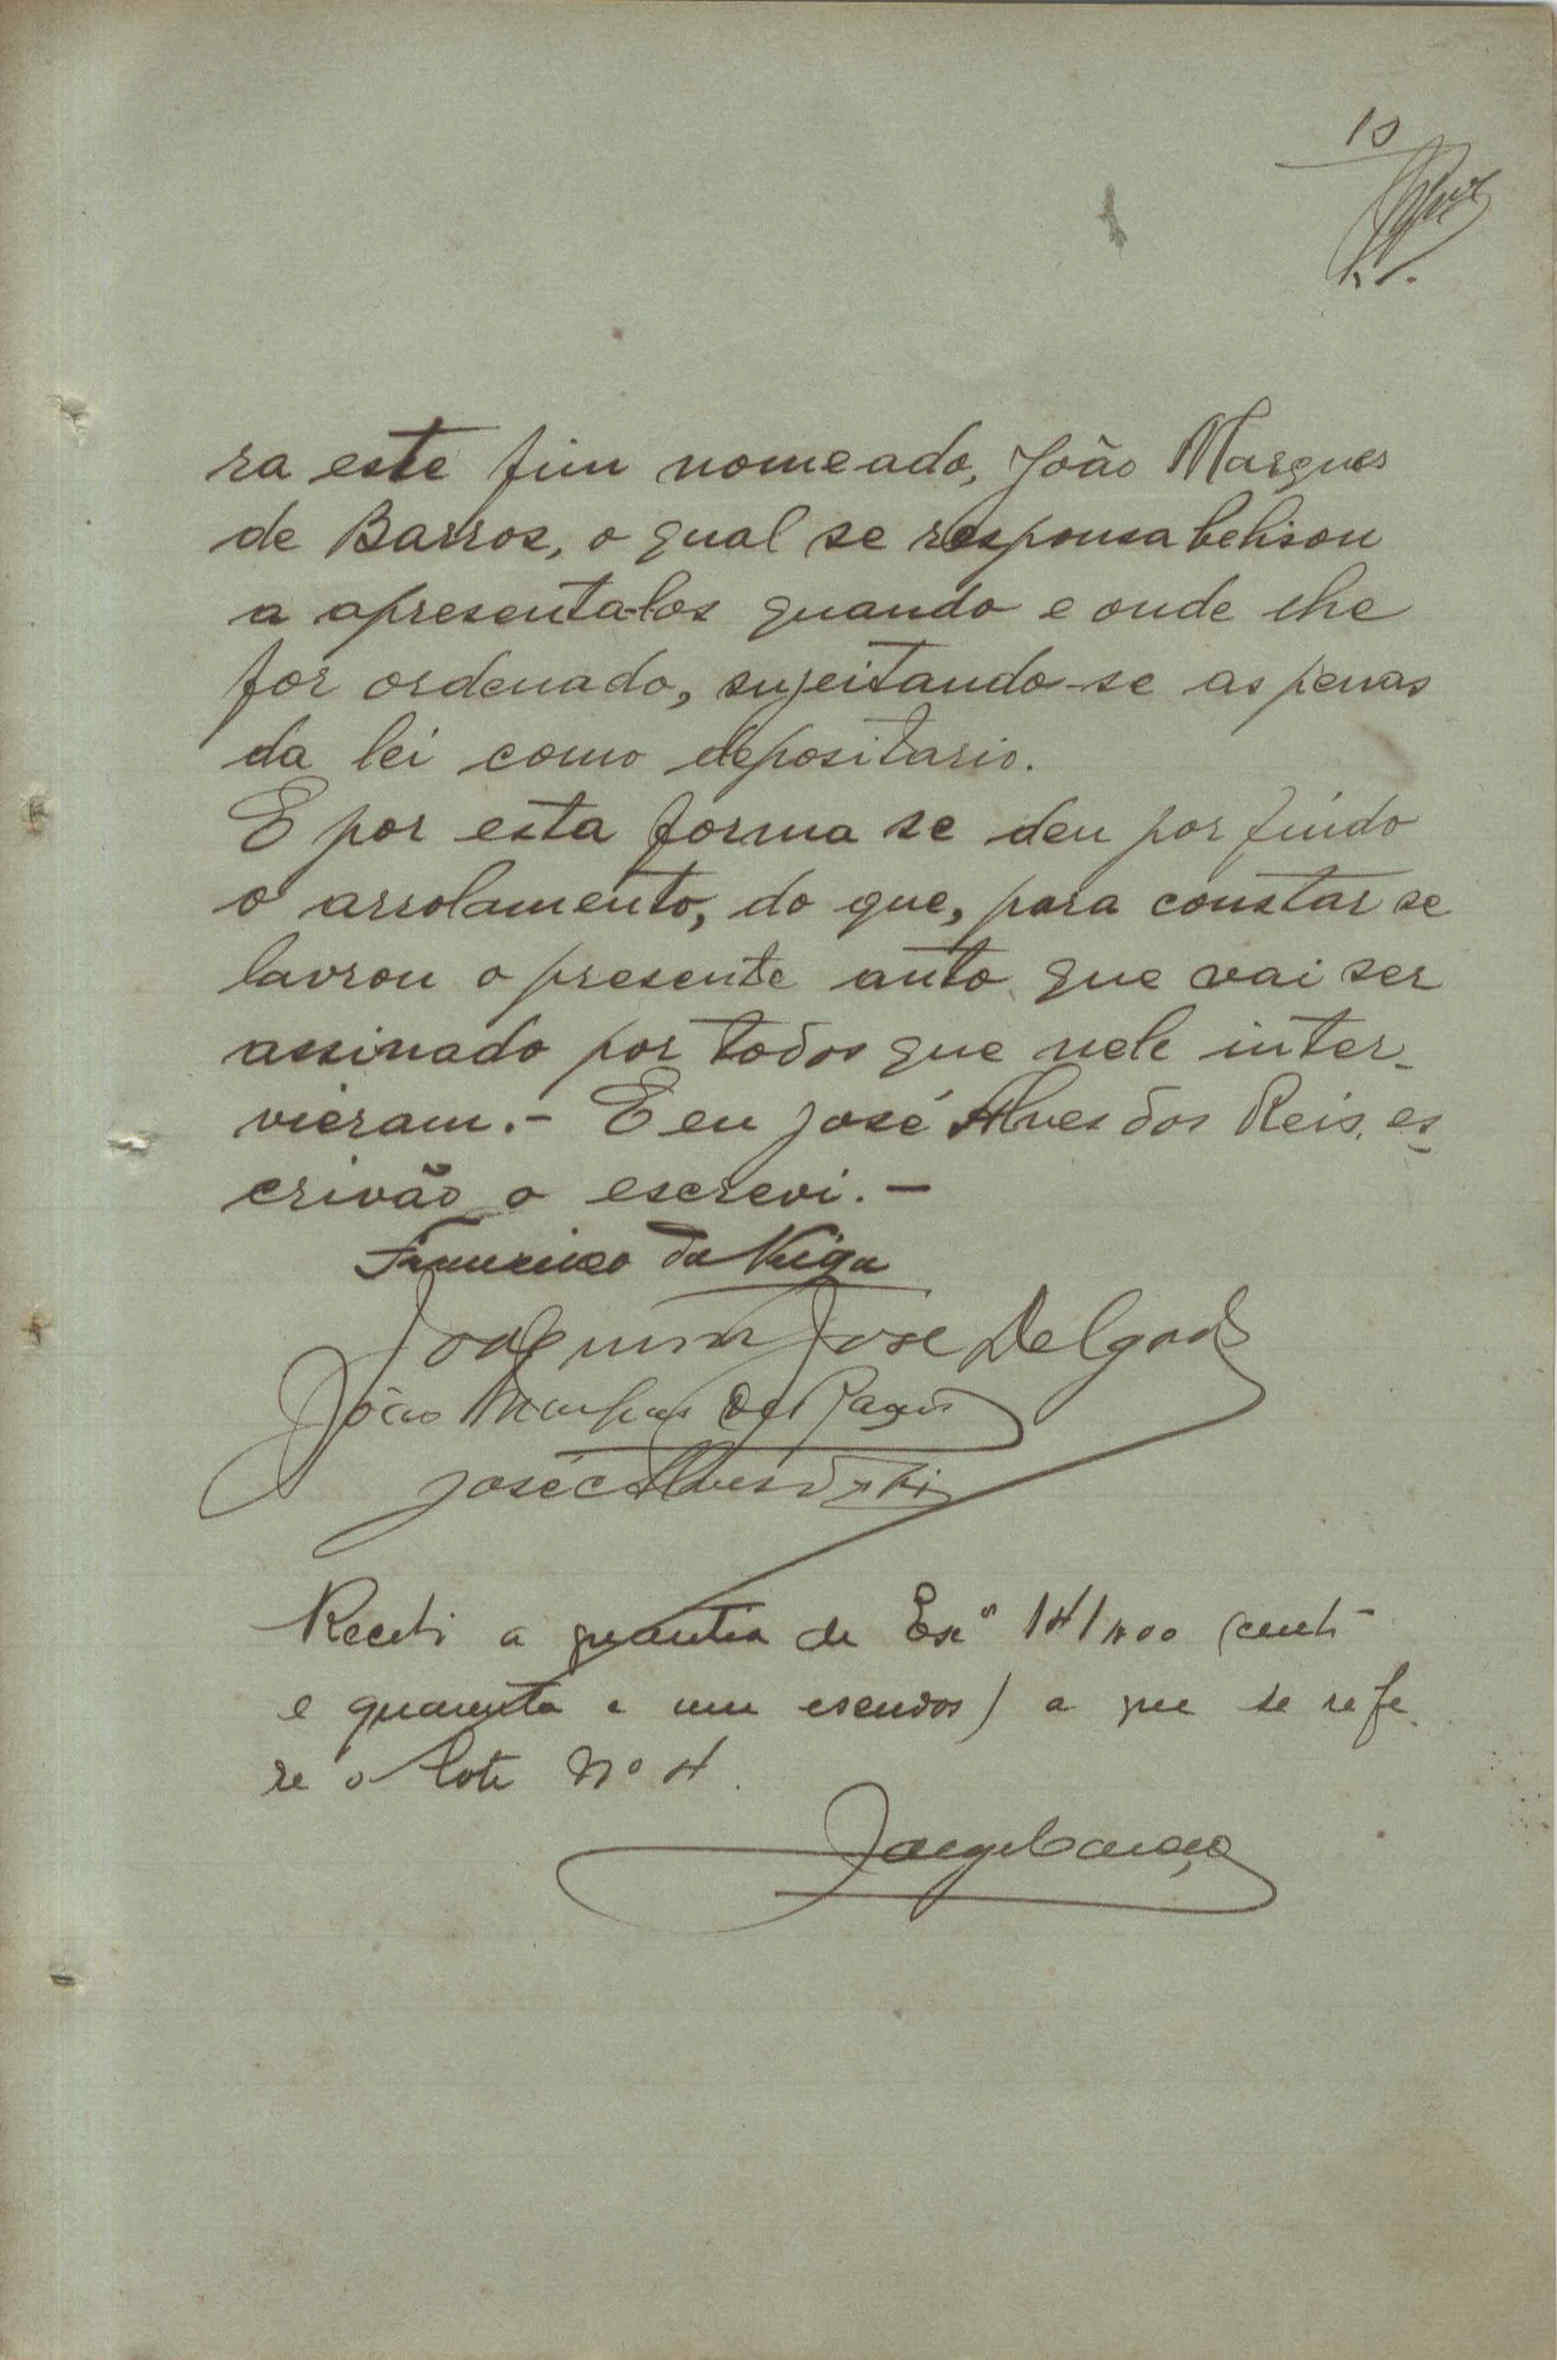 10
ra este fim nomeado, João Marques
de Barros, o qual se responsabelisou
a apresenta-los quando e onde lhe
for ordenado, sujeitando-se as penas
da lei como depositario.
E por esta forma se deu por findo
o arrolamento, do que, para constar se
lavrou o presente auto que vai ser
assinado por todos que nele inter-
vieram.- E eu José Alves dos Reis, es-
crivão o escrevi.-
Francisco da Veiga
Joaquim José Delgado
João Marques de Barros
José Alves dos Reis
Recebi a quantia de Escos 141$00 (cento
e quarenta e um escudos) a que se refe-
re o lote nº 4.